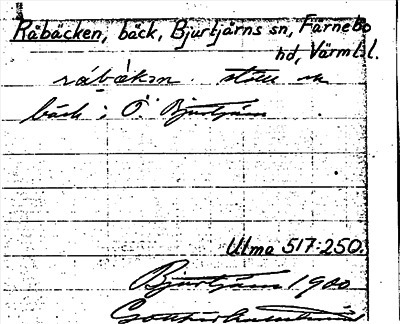 Råbäcken, bäck, Bjurtjärns sn, Färnebo
hd, Värml.l.
råbäkən
bäck i Ö. Bjurtjärn
Ulma 517:250.
Bjurtjärn 1900